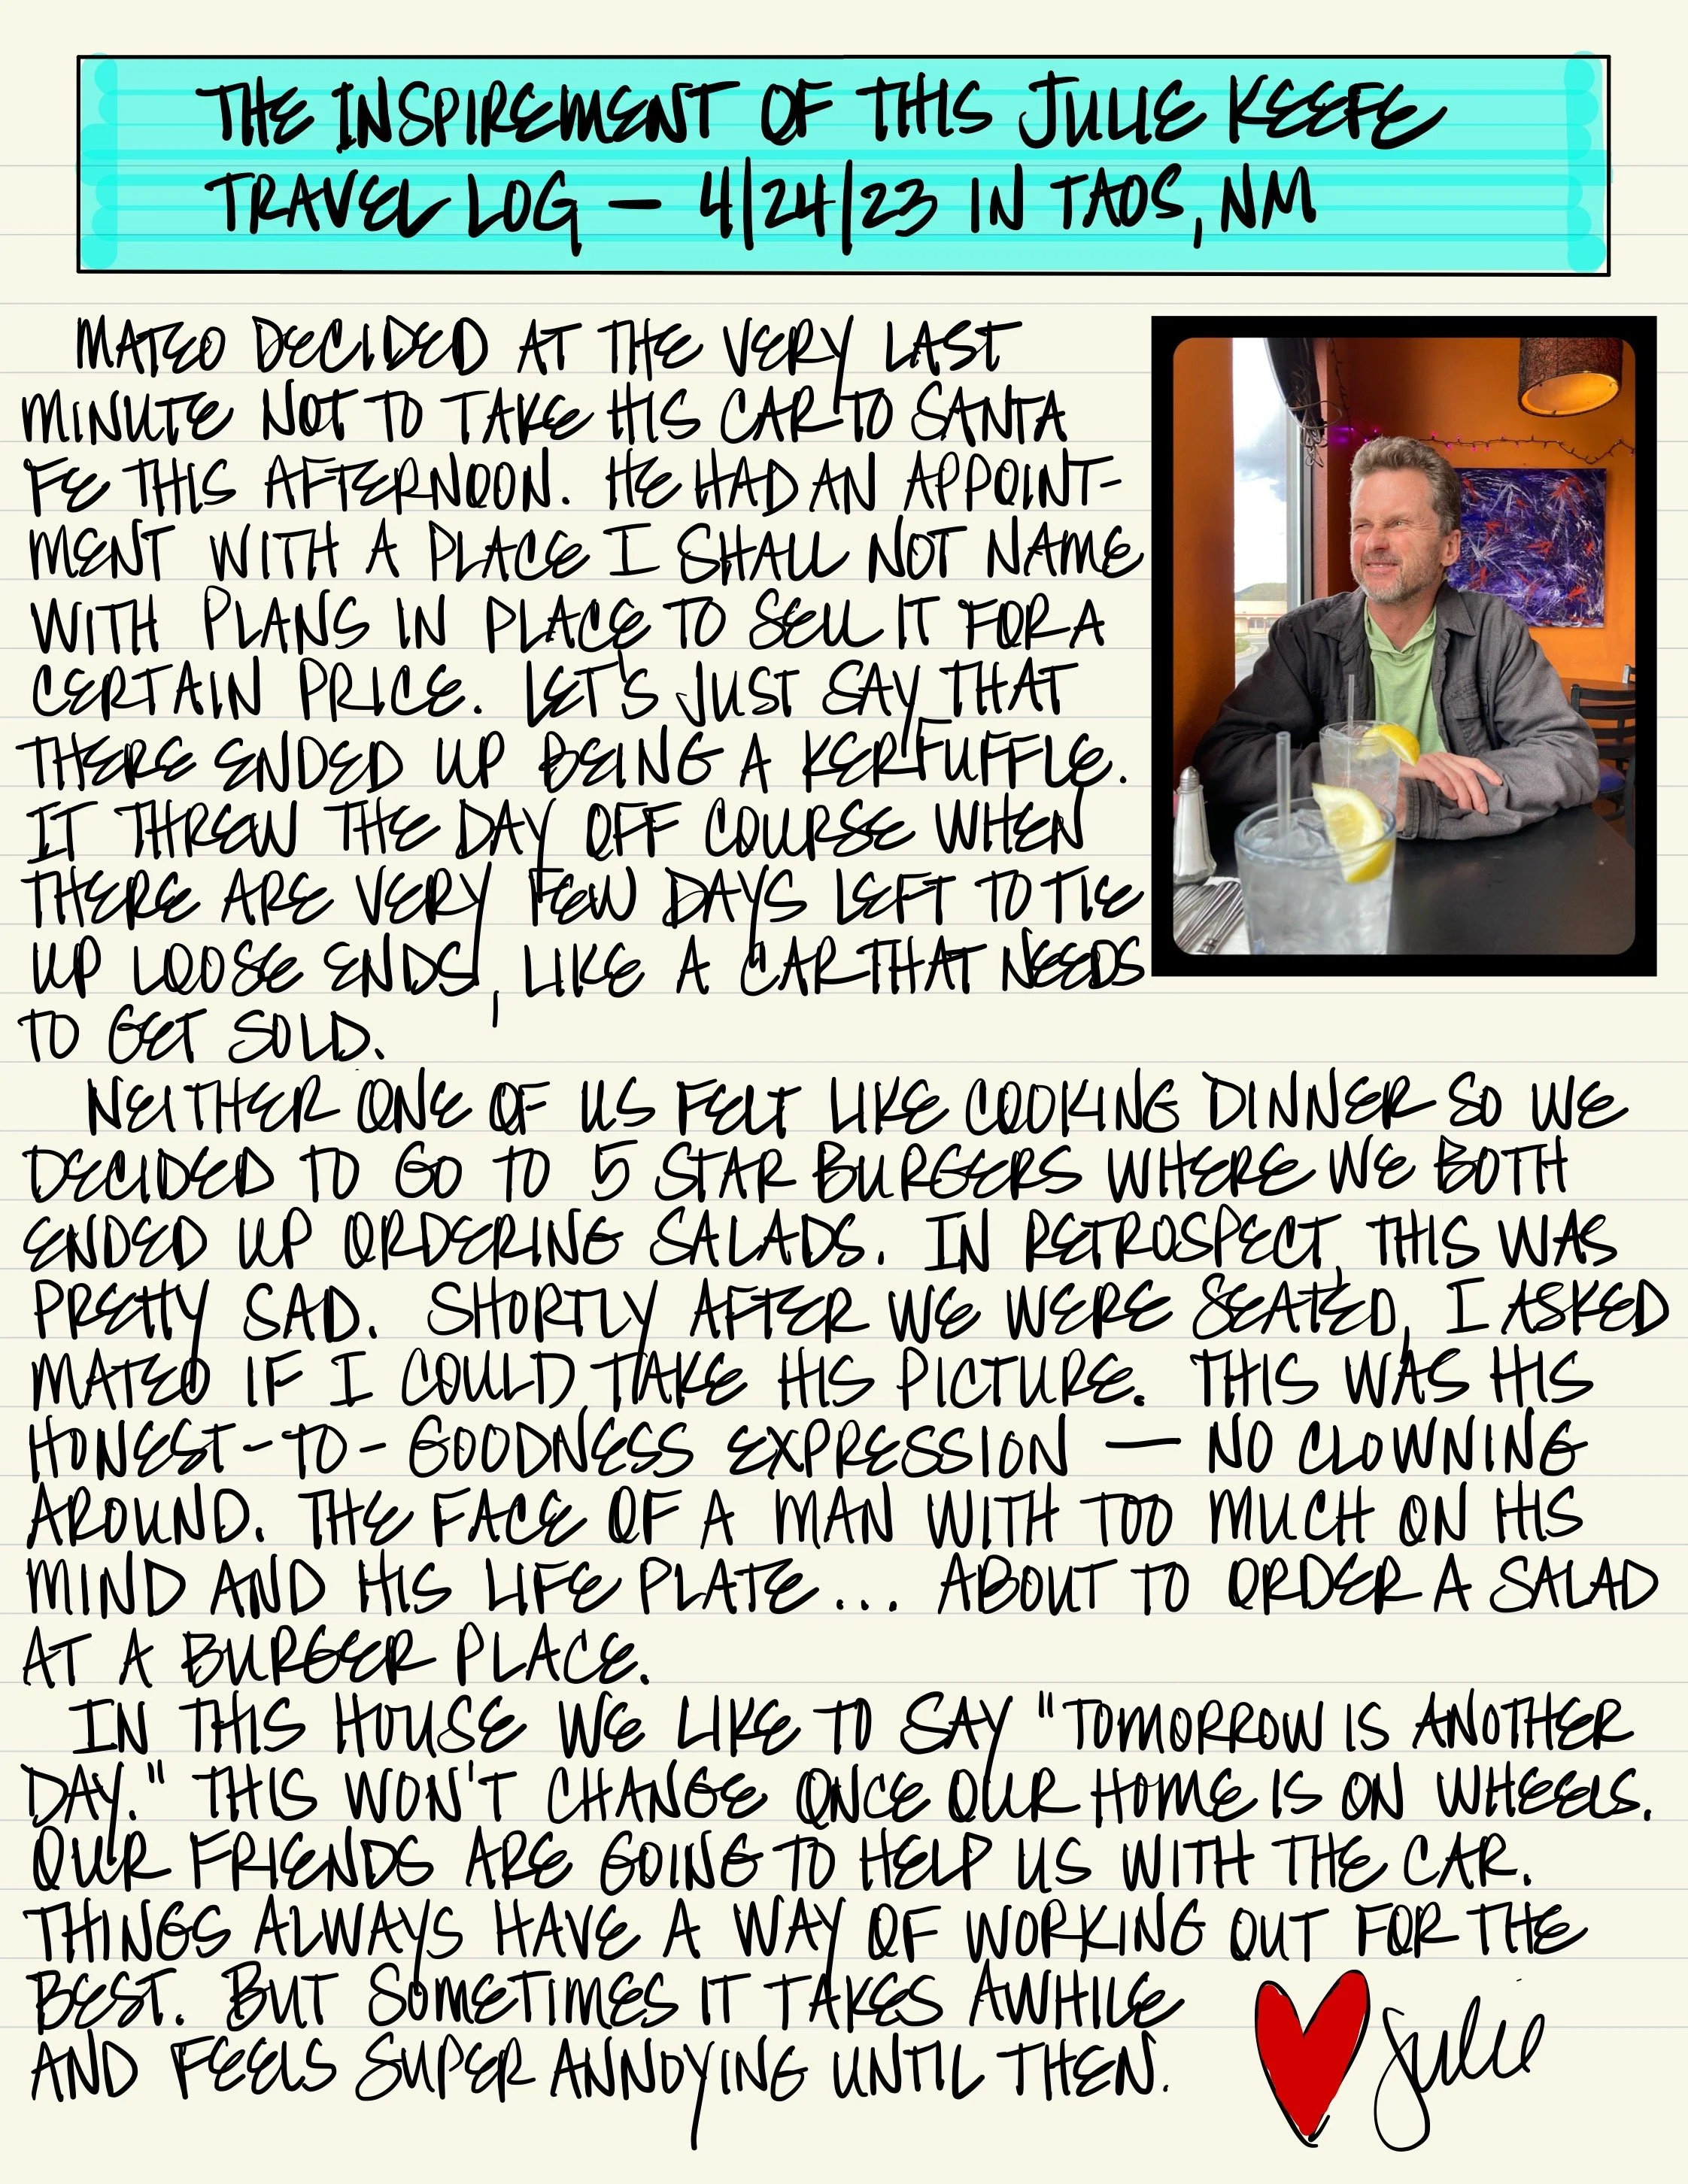 THE INSPIREMENT OF THIS JULIE KEEFE
TRAVEL LOG — 4/24/23 IN TAOS, NM
MATEO DECIDED AT THE VERY LAST
MINUTE NOT TO TAKE HIS CAR TO SANTA
FE THIS AFTERNOON. HE HAD AN APPOINT-
MENT WITH A PLACE I SHALL NOT NAME
WITH PLANS IN PLACE TO SELL IT FOR A
CERTAIN PRICE. LET'S JUST SAY THAT
THERE ENDED UP BEING A KERFUFFLE.
IT THREW THE DAY OFF COURSE WHEN
THERE ARE VERY FEW DAYS LEFT TO TIE
UP LOOSE ENDS, LIKE A CAR THAT NEEDS
TO GET SOLD.
NEITHER ONE OF US FELT LIKE COOKING DINNER SO WE
DECIDED TO GO TO 5 STAR BURGERS WHERE WE BOTH
ENDED UP ORDERING SALADS. IN RETROSPECT, THIS WAS
PRETTY SAD. SHORTLY AFTER WE WERE SEATED, I ASKED
MATEO IF I COULD TAKE HIS PICTURE. THIS WAS HIS
HONEST-TO-GOODNESS EXPRESSION — NO CLOWNING
AROUND. THE FACE OF A MAN WITH TOO MUCH ON HIS
MIND AND HIS LIFE PLATE... ABOUT TO ORDER A SALAD
AT A BURGER PLACE.
IN THIS HOUSE WE LIKE TO SAY "TOMORROW IS ANOTHER
DAY." THIS WON'T CHANGE ONCE OUR HOME IS ON WHEELS.
OUR FRIENDS ARE GOING TO HELP US WITH THE CAR.
THINGS ALWAYS HAVE A WAY OF WORKING OUT FOR THE
BEST. BUT SOMETIMES IT TAKES AWHILE
AND FEELS SUPER ANNOYING UNTIL THEN.
Julie